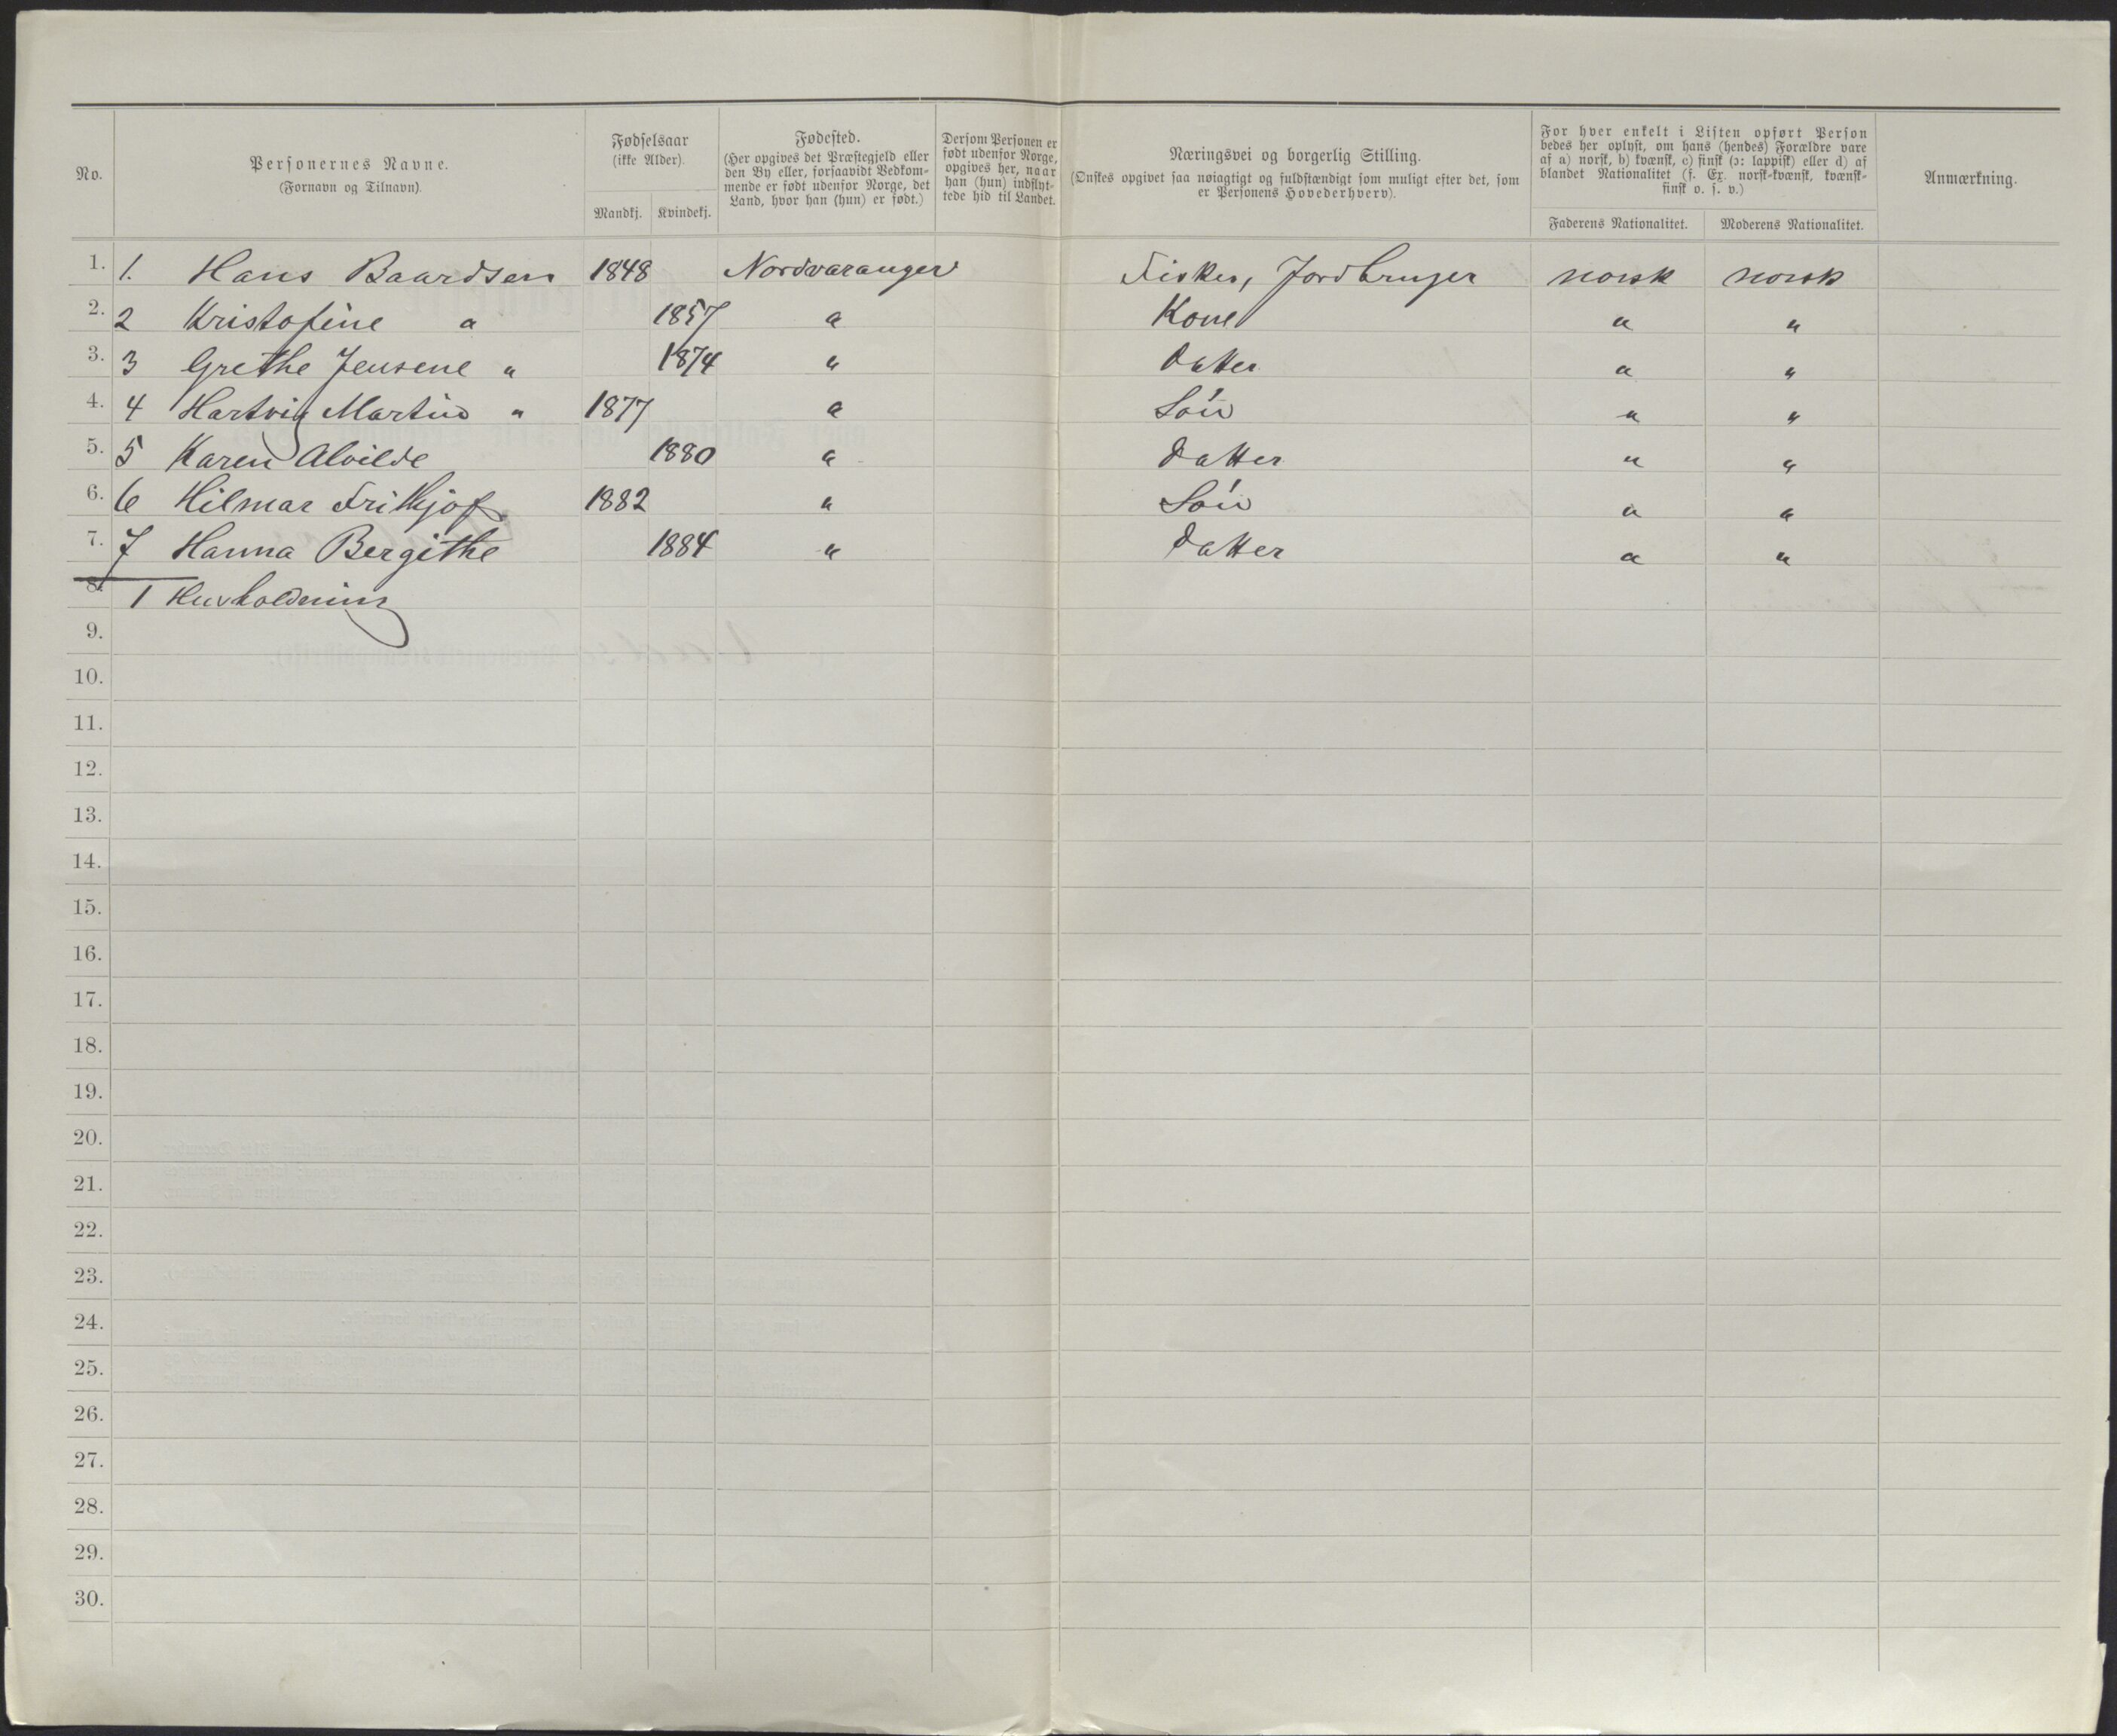 No.
Personernes Navne.
(Fornavn og Tilnavn).
Fødselsaar
(ikke Alder).
Mandkj. Kvindekj.
Fødested.
(Her opgives det Præstegjeld eller
den By eller, forsaavidt Vedkom-
mende er født udenfor Norge, det
Land, hvor han (hun) er født.)
Dersom Personen er
født udenfor Norge,
opgives her, naar
han (hun) indflyt-
tede hid til Landet.
Næringsvei og borgerlig Stilling.
(Ønskes opgivet saa nøiagtigt og fuldstændigt som muligt efter det, som
er Personens Hovederhverv).
For hver enkelt i Listen opført Person
bedes her oplyst, om hans (hendes) Forældre vare
af a) norsk, b) kvænsk, c) finsk (ɔ: lappisk) eller d) af
blandet Nationalitet (f. Ex. norsk-kvænsk, kvænsk-
finsk o. s. v.)
Faderens Nationalitet. Moderens Nationalitet.
Anmærkning.
1. 1. Hans Baardsen 1848 Nordvaranger Fisker, Jordbruger norsk norsk
2. 2 Kristofine " 1857 " Kone " "
3. 3 Grethe Jensene " 1874 " Datter " "
4. 4 Hartvig Martin " 1877 " Søn " "
5. 5 Karen Alvilde 1880 " Datter " "
6. 6 Hilmar Frithjof 1882 " Søn " "
7. 7 Hanna Bergithe 1884 " Datter " "
8. 1 Husholdning
9.
10.
11.
12.
13.
14.
15.
16.
17.
18.
19.
20.
21.
22.
23.
24.
25.
26.
27.
28.
29.
30.